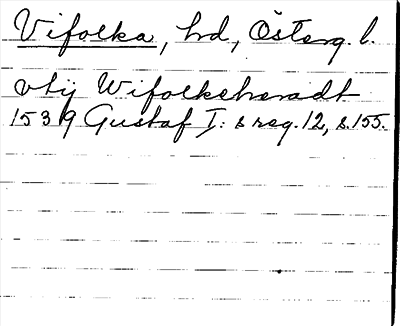 Vifolka, hd, Österg. l.
vtij Wifolkeheradt
1539 Gustaf I: s reg. 12, s. 155.